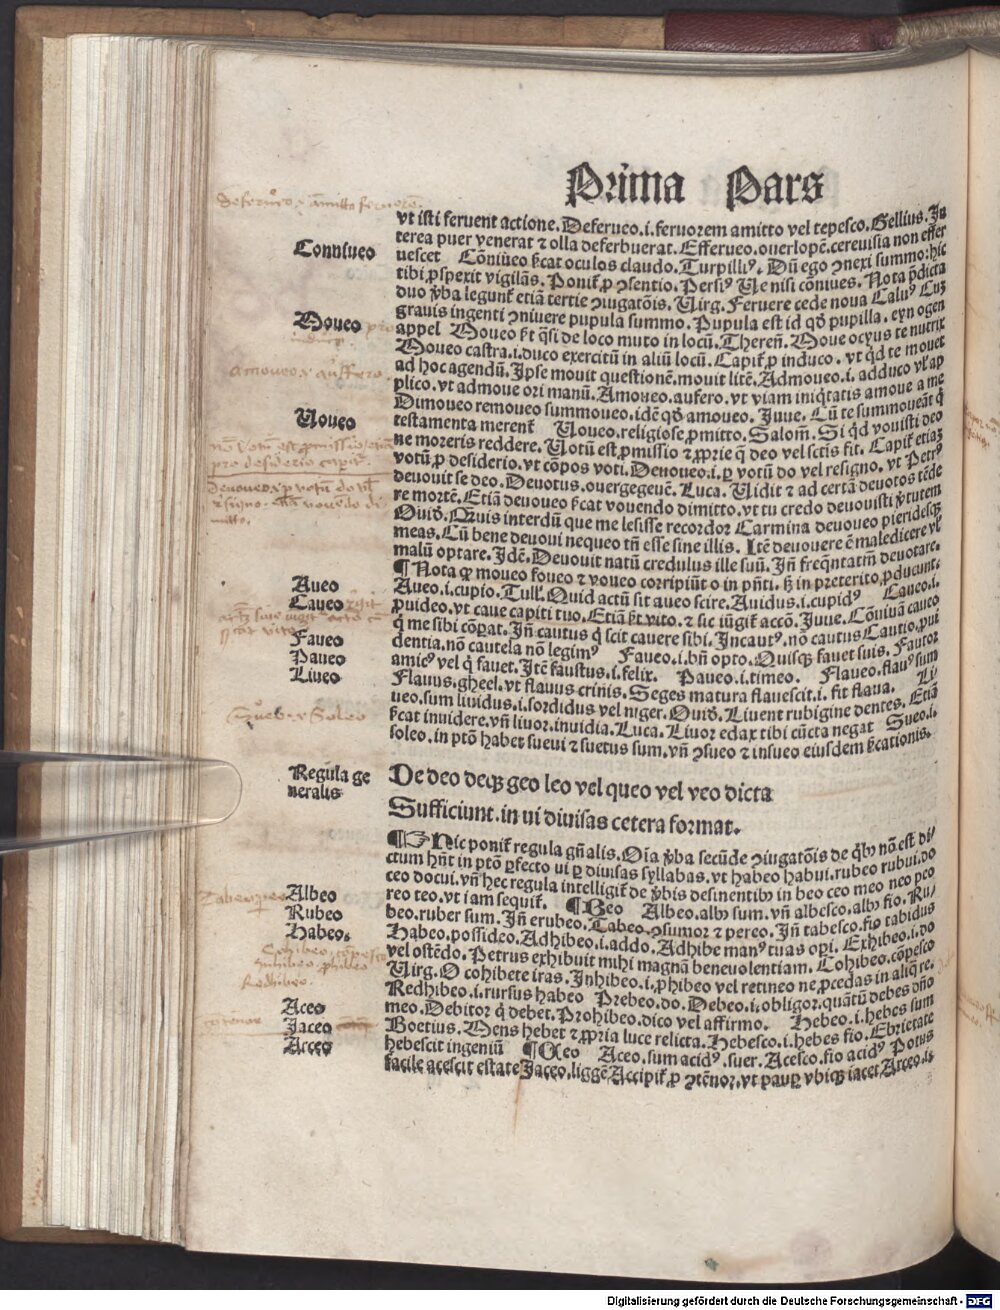 Prima Pars
vt isti feruent actione. Deferueo .i. feruorem amitto vel tepesco. Gellius. In
terea puer venerat ⁊ olla deferbuerat. Efferueo. ouerlopē. cereuisia non effer
uescet Cōniueo ſcat oculos claudo. Turpilliꝰ. Dū ego ꝯnexi summo: hic
tibi. ꝓspexit vigilās. Poniť ꝓ ꝯsentio. Persiꝰ Ve nisi cōniues. Nota p̄dicta
duo v̄ba legunť etiā tertie ꝯiugatōis. Virg. Feruere cede noua Caluꝰ Cuꝫ
grauis ingenti ꝯniuere pupula summo. Pupula est id qđ pupilla. eyn ogen
appel Moueo ſt q̄si de loco muto in locū. Therē. Moue ocyus te nutrix
Moueo castra .i. duco exercitū in aliū locū. Capiť ꝓ induco. vt qd te mouet
ad hoc agendū. Ipse mouit questionē. mouit litē. Admoueo .i. adduco vľ ap
plico. vt admoue ori manū. Amoueo. aufero. vt viam iniq̇tatis amoue a me
Dimoueo remoueo summoueo. idē qđ amoueo. Juue. Cū te summoueāt q̇
testamenta merenť Voueo. religiose ꝓmitto. Salom̄. Si qd vouisti deo
ne moreris reddere. Votū est ꝓmissio ⁊ ꝓprie q̄ deo vel sctīs fit. Capiť etiaꝫ
votū ꝓ desiderio. vt cōpos voti. Deuoueo .i. ꝑ votū do vel resigno. vt Petrꝰ
deuouit se deo. Deuotus. ouergegeuē. Luca. Vidit ⁊ ad certā deuotos tēde
re mortē. Etiā deuoueo ſcat vouendo dimitto. vt tu credo deuouisti v̄tutem
Ouiđ. Q̄uis interdū que me lesisse recordor Carmina deuoueo pieridesqꝫ
meas. Cū bene deuoui nequeo tn̄ esse sine illis. Itē deuouere ē maledicere vľ
malū optare. Idē. Deuouit natū credulus ille suū. Jn̄ freq̄ntatm̄ deuotare.
¶ Nota ꝙ moueo foueo ⁊ voueo corripiūt o in pn̄ti. ꝫ in preterito ꝓducunt.
Aueo .i. cupio. Tull. Quid actū sit aueo scire. Auidus .i. cupidꝰ Caueo .i.
ꝓuideo. vt caue capiti tuo. Etiā ſt vito. ⁊ sic iūgiť accō. Juue. Cōuiuā caueo
q̇ me sibi cōꝑat. Jn̄ cautus q̇ scit cauere sibi. Incautꝰ. nō cautus Cautio. ꝓui
dentia. nō cautela nō legimꝰ Faueo .i. bn̄ opto. Quisqꝫ fauet suis. Fautor
amicꝰ vel q̇ fauet. Itē faustus .i. felix. Paueo .i. timeo. Flaueo. flauꝰ sum
Flauus. gheel. vt flauus crinis. Seges matura flauescit .i. fit flaua. Li
ueo. sum liuidus .i. sordidus vel niger. Ouiđ. Liuent rubigine dentes. Etiā
ſcat inuidere. vn̄ liuor. inuidia. Luca. Liuor edax tibi cūcta negat Sueo .i.
soleo. in ptō habet sueui ⁊ suetus sum. vn̄ ꝯsueo ⁊ insueo eiusdem ſcationis.
De deo deqꝫ geo leo vel queo vel veo dicta
Sufficiunt. in ui diuisas cetera format.
¶ Hic poniť regula gn̄alis. Oīa v̄ba secūde ꝯiugatōis de q̇bꝰ nō est di/
ctum hn̄t in ptō ꝑfecto ui ꝑ diuisas syllabas. vt habeo habui. rubeo rubui. do
ceo docui. vn̄ hec regula intelligiť de v̄bis desinentibꝰ in beo ceo meo neo peo
reo teo. vt iam sequiť. ¶ Beo Albeo. albꝰ sum. vn̄ albesco. albꝰ fio. Ru/
beo. ruber sum. Jn̄ erubeo. Tabeo. ꝯsumor ⁊ pereo. Jn̄ tabesco. fio tabidus
Habeo. possideo. Adhibeo .i. addo. Adhibe manꝰ tuas oꝑi. Exhibeo .i. do
vel ostēdo. Petrus exhibuit mihi magnā beneuolentiam. Cohibeo. cōpesco
Virg. O cohibete iras. Inhibeo .i. ꝓhibeo vel retineo ne ꝓcedas in aliq̄ re.
Redhibeo .i. rursus habeo Prebeo. do. Debeo .i. obligor. quātū debes dn̄o
meo. Debitor q̇ debet. Prohibeo. dico vel affirmo. Hebeo .i. hebes sum
Boetius. Mens hebet ⁊ ꝓpria luce relicta. Hebesco .i. hebes fio. Ebrietate
hebescit ingeniū ¶ Ceo Aceo. sum acidꝰ. suer. Acesco. fio acidꝰ Potus
facile acescit estate Jaceo. liggē Accipiť ꝓ ꝯtēnor. vt pauꝑ vbiqꝫ iacet Arceo .i.
Conniueo
Moueo
Voueo
Aueo
Caueo
Faueo
Paueo
Liueo
Regula ge
neralis
Albeo
Rubeo
Habeo.
Aceo
Jaceo
Arceo
Digitalisierung gefördert durch die Deutsche Forschungsgemeinschaft - DFG